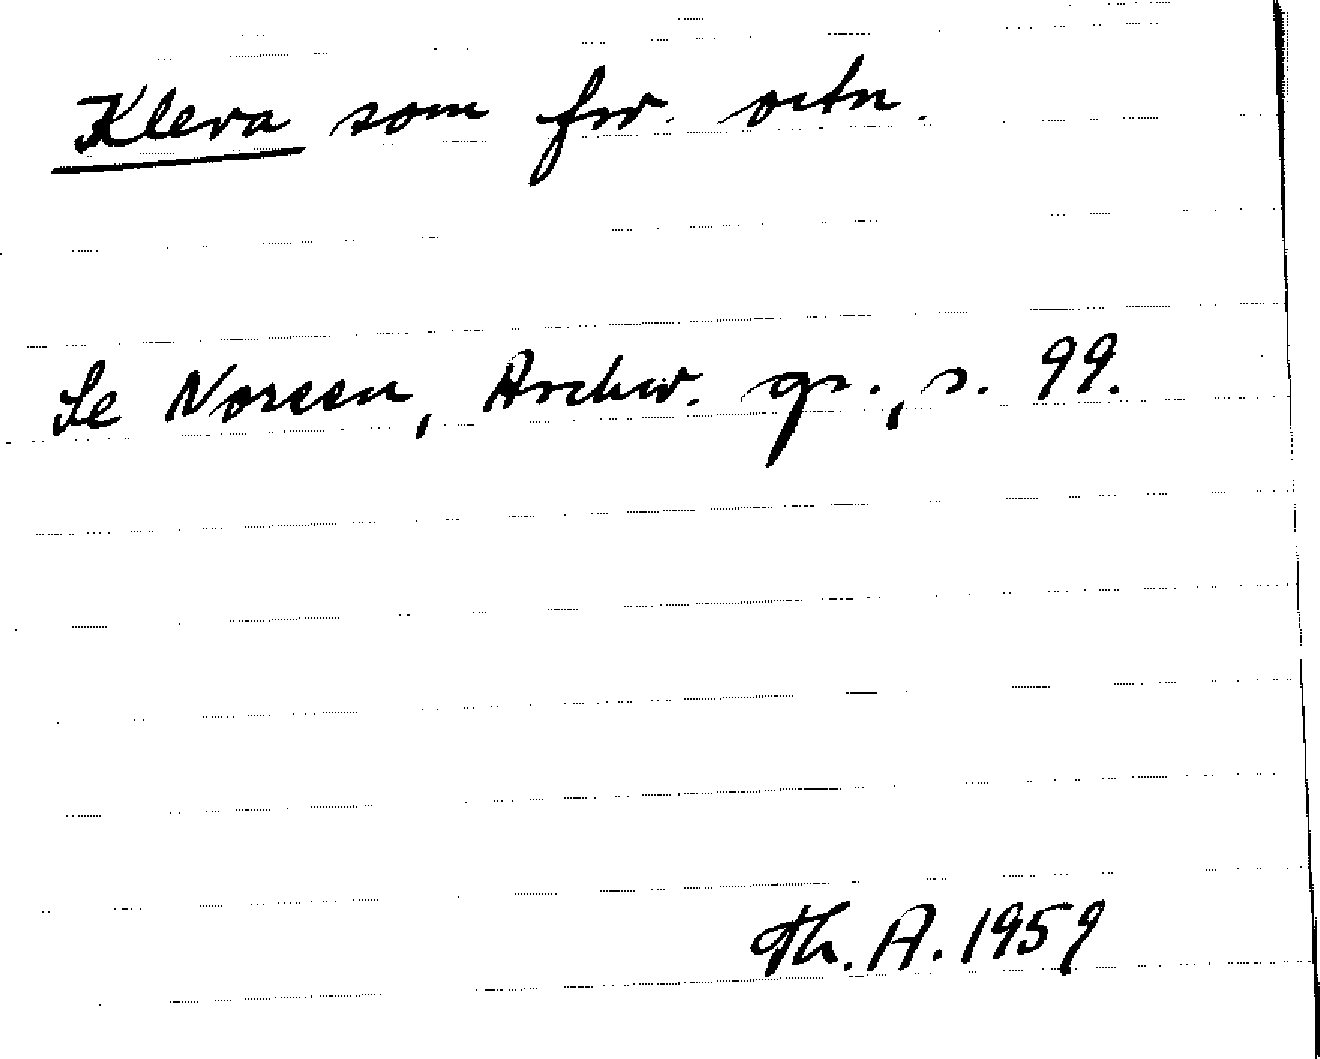 Kleva som fsv. ortn.
Se Noreen, Archiv. gr., s. 99.
Th. A. 1959